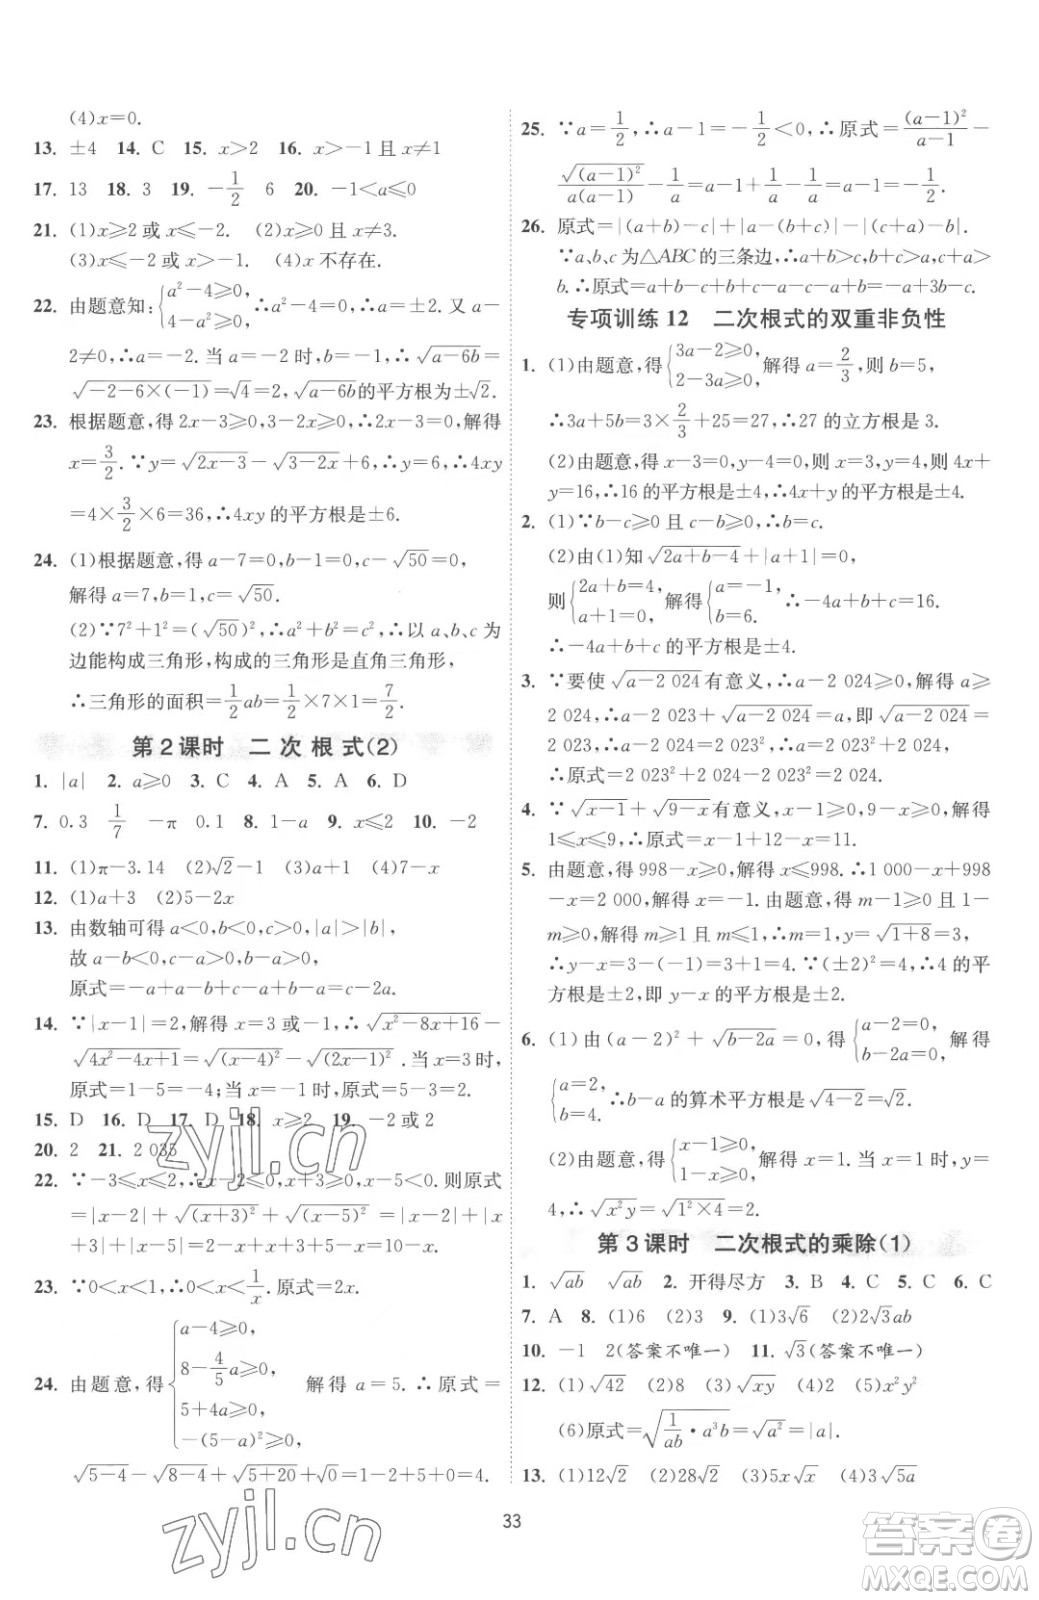 (4)x=0.
13. ±4 14. C 15. x>2 16. x>-1且x≠1
17. 13 18. 3 19. -1/2 6 20. -1<a≤0
21. (1)x≥2 或 x≤-2. (2)x≥0 且 x≠3.
(3)x≤-2 或 x>-1. (4)x 不存在.
22. 由题意知:{a²-4≥0, 4-a²≥0,∴a²-4=0,∴a=±2.又 a-
2≠0,∴a=-2. 当 a=-2 时,b=-1,∴√(a-6b)=
√(-2-6×(-1))=√4=2.√(a-6b)的平方根为±√2.
23. 根据题意,得 2x-3≥0,3-2x≥0,∴2x-3=0,解得
x=3/2.∵y=√(2x-3)-√(3-2x)+6,∴y=6,∴4xy
=4×3/2×6=36,∴4xy 的平方根是±6.
24. (1)根据题意,得 a-7=0,b-1=0,c-√50=0,
解得 a=7,b=1,c=√50.
(2)∵7²+1²=(√50)²,∴a²+b²=c²,∴以 a、b、c 为
边能构成三角形,构成的三角形是直角三角形,
∴三角形的面积=1/2ab=1/2×7×1=7/2.
第2课时 二次根式(2)
1. |a| 2. a≥0 3. C 4. A 5. A 6. D
7. 0.3 1/7 -π 0.1 8. 1-a 9. x≤2 10. -2
11. (1)π-3.14 (2)√2-1 (3)a+1 (4)7-x
12. (1)a+3 (2)5-2x
13. 由数轴可得 a<0,b<0,c>0,|a|>|b|,
故 a-b<0,c-a>0,b-c<0,
原式=-a+a-b+c-a+b-c=-a.
14. ∵|x-1|=2,解得 x=3 或-1,∴√(x²-8x+16)-
√(4x²-4x+1)=√((x-4)²)-√((2x-1)²). 当 x=3 时,
原式=1-5=-4;当 x=-1时,原式=5-3=2.
15. D 16. D 17. D 18. x≥2 19. -2或2
20. 2 21. 2 035
22. ∵-3≤x≤2,∴x-2≤0,x+3≥0,x-5<0.则原式
=|x-2|+√((x+3)²)+√((x-5)²)=|x-2|+|x
+3|+|x-5|=2-x+x+3-x+5=-x+10.
23. ∵0<x<1,∴0<x<1/x.原式=2x.
24. 由题意,得{a-4≥0, 8-4/5a≥0, 5+4a≥0, -(5-a)²≥0 解得 a=5.∴原式=
√(5-4)-√(8-4)+√(5+20)+√0=1-2+5+0=4.
25. ∵a=1/2,∴a-1=-1/2<0,∴原式=(a-1)²/(a-1)-
√((a-1)²)/(a(a-1))=a-1+1/a=1/2-1+2=3/2.
26. 原式=|(a+b)-c|+|a-(b+c)|-|(c+a)-b|.
∵a、b、c 为△ABC 的三条边,∴a+b>c,b+c>a,c+a>
b.∴原式=a+b-c+b+c-a-c-a+b=-a+3b-c.
专项训练12 二次根式的双重非负性
1. (1)由题意,得{3a-2≥0, 2-3a≥0,解得 a=2/3,则 b=5,
∴3a+5b=3×2/3+25=27,∴27 的立方根是 3.
(2)由题意,得 x-3=0,y-4=0,则 x=3,y=4,则 4x+
y=16,∴16 的平方根是±4.
2. (1)∵b-c≥0 且 c-b≥0,∴b=c.
(2)由(1)知√(2a+b-4)+|a+1|=0,
则{2a+b=4, a+1=0,解得{a=-1, b=6.∴-4a+b+c=16.
∴-4a+b+c 的平方根是±4.
3. ∵要使√(a-2 024)有意义,∴a-2 024≥0,解得 a≥
2 024,∴a-2 023+√(a-2 024)=a,即√(a-2 024)=
2 023,∴a=2 023²+2 024,
∴原式=2 023²+2 024-2 023²=2 024.
4. ∵√(x-1)+√(9-x)有意义,∴x-1≥0,9-x≥0,∴
1≤x≤9,∴原式=x-1+12-x=11.
5. 由题意,得 998-x≥0,解得 x≤998.∴1 000-x+998
-x=2 000,解得 x=-1. 由题意,得 m-1≥0 且 1-
m≥0,解得 m≥1 且 m≤1,∴m=1,y=√(1+8)=3,
∴y-x=3-(-1)=4.∵(±2)²=4,∴4 的平
方根是±2,即 y-x 的平方根是±2.
6. (1)由(a-2)²+√(b-2a)=0,得{a-2=0, b-2a=0,解得
{a=2, b=4.∴b-a 的算术平方根是√(4-2)=√2.
(2)由题意,得{x-1≥0, 1-x≥0,解得 x=1. 当 x=1 时,y=
4,∴√(x²y)=√(1²×4)=2.
第3课时 二次根式的乘除(1)
1. √ab √ab 2. 开得尽方 3. B 4. C 5. C 6. C
7. A 8. (1)6 (2)3 9. (1)3√6 (2)2√3ab
10. -1 2(答案不唯一) 11. √3(答案不唯一)
12. (1)√42 (2)8 (3)√xy (4)2 (5)x²y²
(6)原式=√(1/ab·a³b)=√a²=|a|.
13. (1)12√2 (2)28√2 (3)5x√x (4)3√5a
33
zyjl.cn
zyjl.cn
答案圈
MXQE.COM